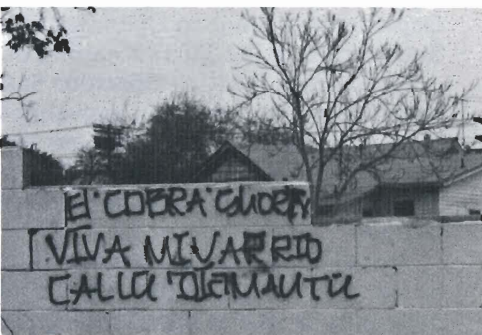 El COBRA GHOERY
VIVA MI VARRIO
CALLE DIEMANTE